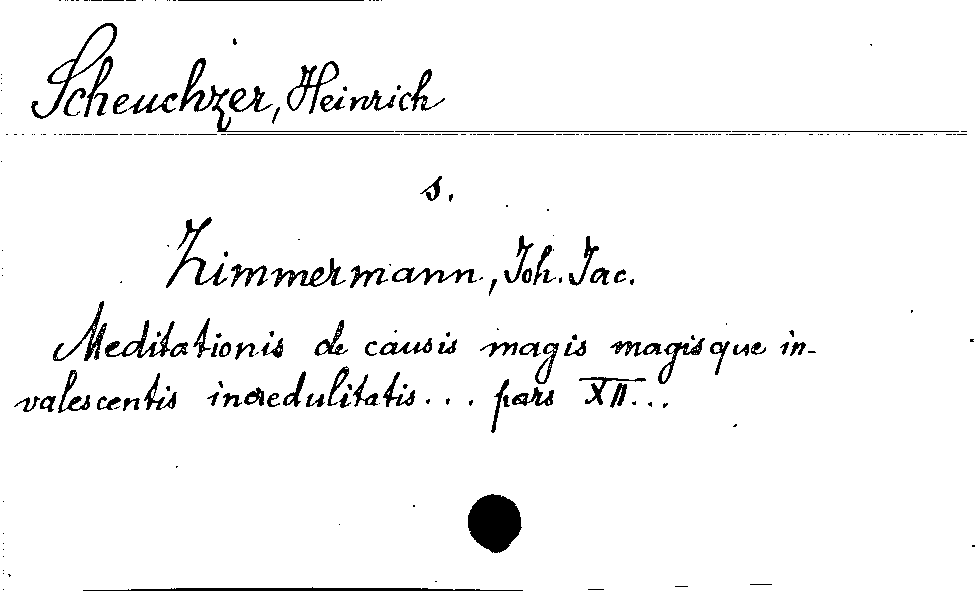 Scheuchzer, Heinrich
s.
Zimmermann, Joh. Jac.
Meditationis de causis magis magisque in-
valescentis incredulitatis... pars XII...